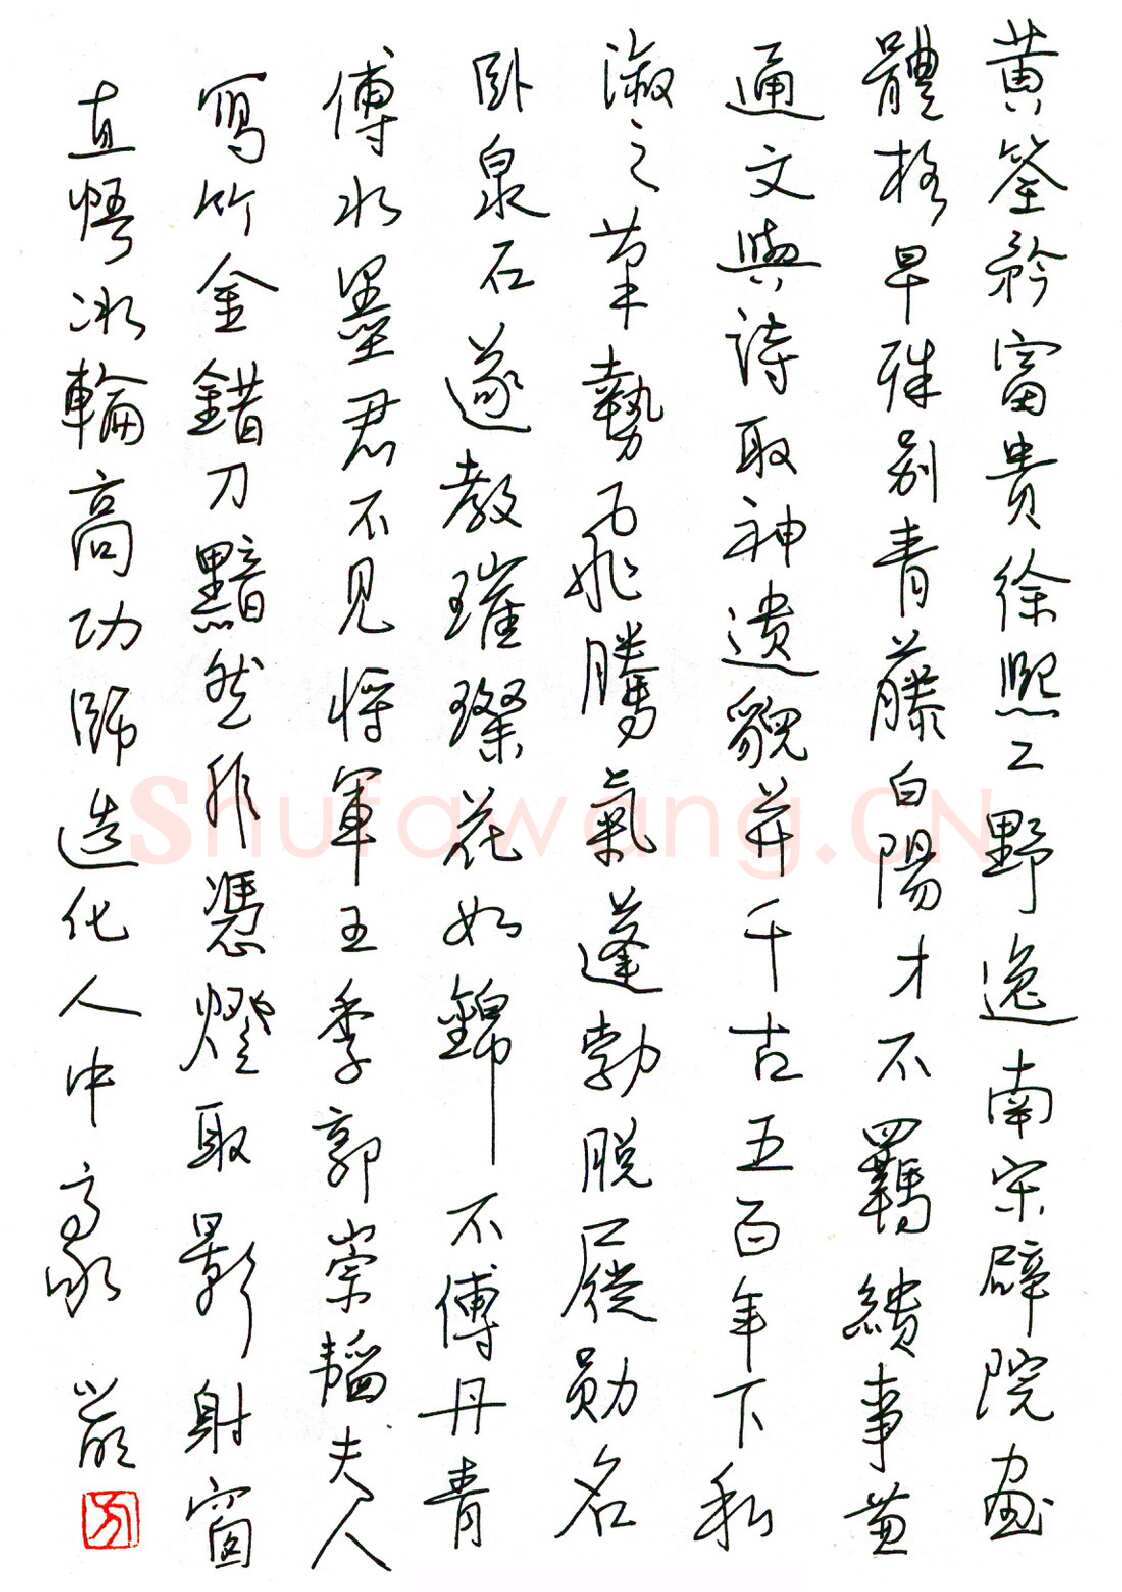 黄筌矜富貴徐熙工野逸南宋辟院画
體格早殊别青藤白陽才不羈繢事兼
通文與詩取神遺貌并千古五百年下私
淑之筆勢飛騰氣蓬勃脱屣勛名
卧泉石遂教璀璨花如錦不傅丹青
傅水墨君不見將軍王季郭崇韜夫人
寫竹金錯刀黯然非憑燈取影射窗
直悟冰輪高功師造化人中豪
Shufawang.CN